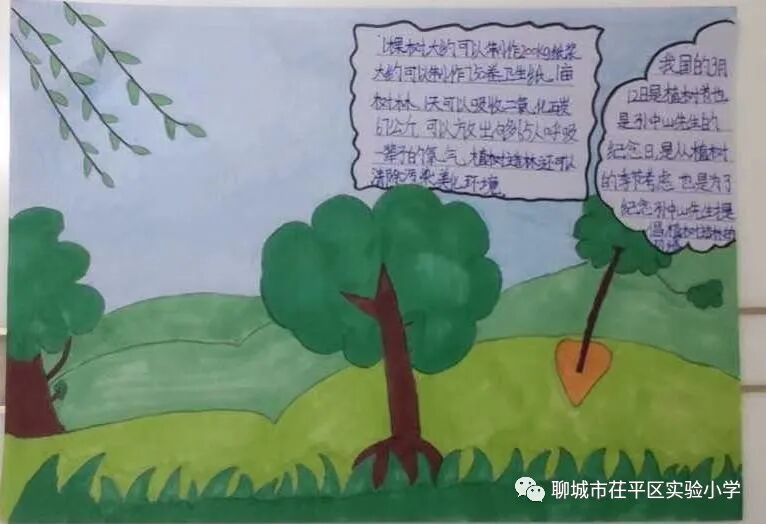 1棵树大约可以制作200kg纸浆
大约可以制作750卷卫生纸,1亩
树林1天可以吸收二氧化碳
67公斤,可以放出够65人呼吸
一辈子的氧气,植树造林还可以
清除污染,美化环境
我国的3月
12日是植树节也
是孙中山先生的
纪念日,是从植树
的季节考虑 也是为了
纪念孙中山先生
倡植树造林的
聊城市茌平区实验小学